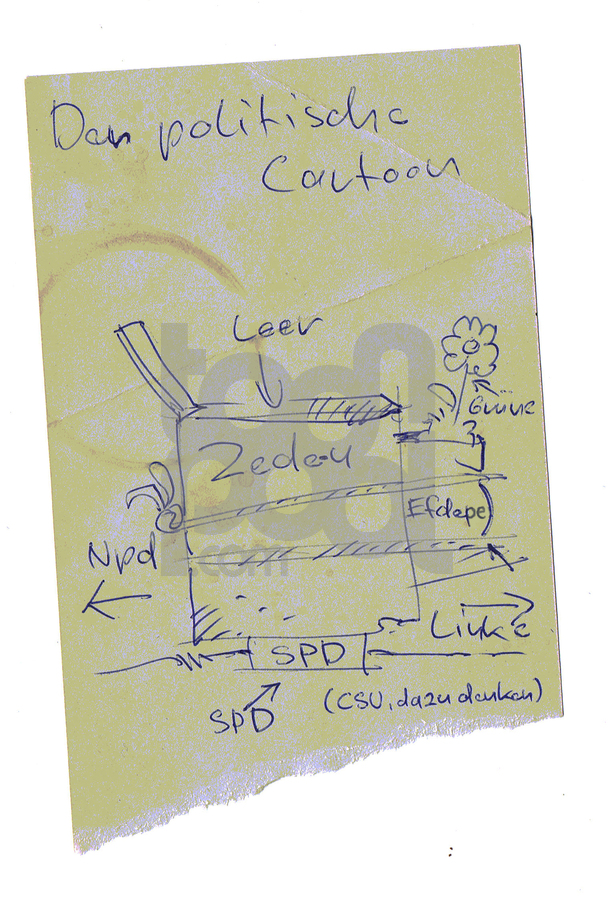 Der politische
Cartoon
Leer
Grüne
Zede-u
Efdepe
Npd
Linke
SPD
SPD
(CSU, dazu denken)
toonpool.com